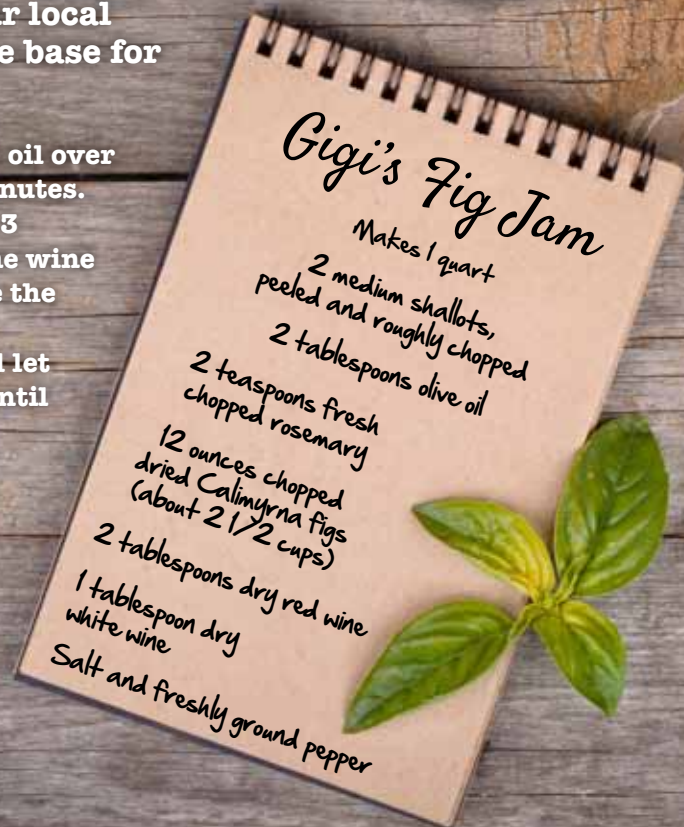 r local
e base for
oil over
nutes.
3
e wine
e the
l let
ntil
Gigi's Fig Jam
Makes 1 quart
2 medium shallots,
peeled and roughly chopped
2 tablespoons olive oil
2 teaspoons fresh
chopped rosemary
12 ounces chopped
dried Calimyrna figs
(about 2 1/2 cups)
2 tablespoons dry red wine
1 tablespoon dry
white wine
Salt and freshly ground pepper